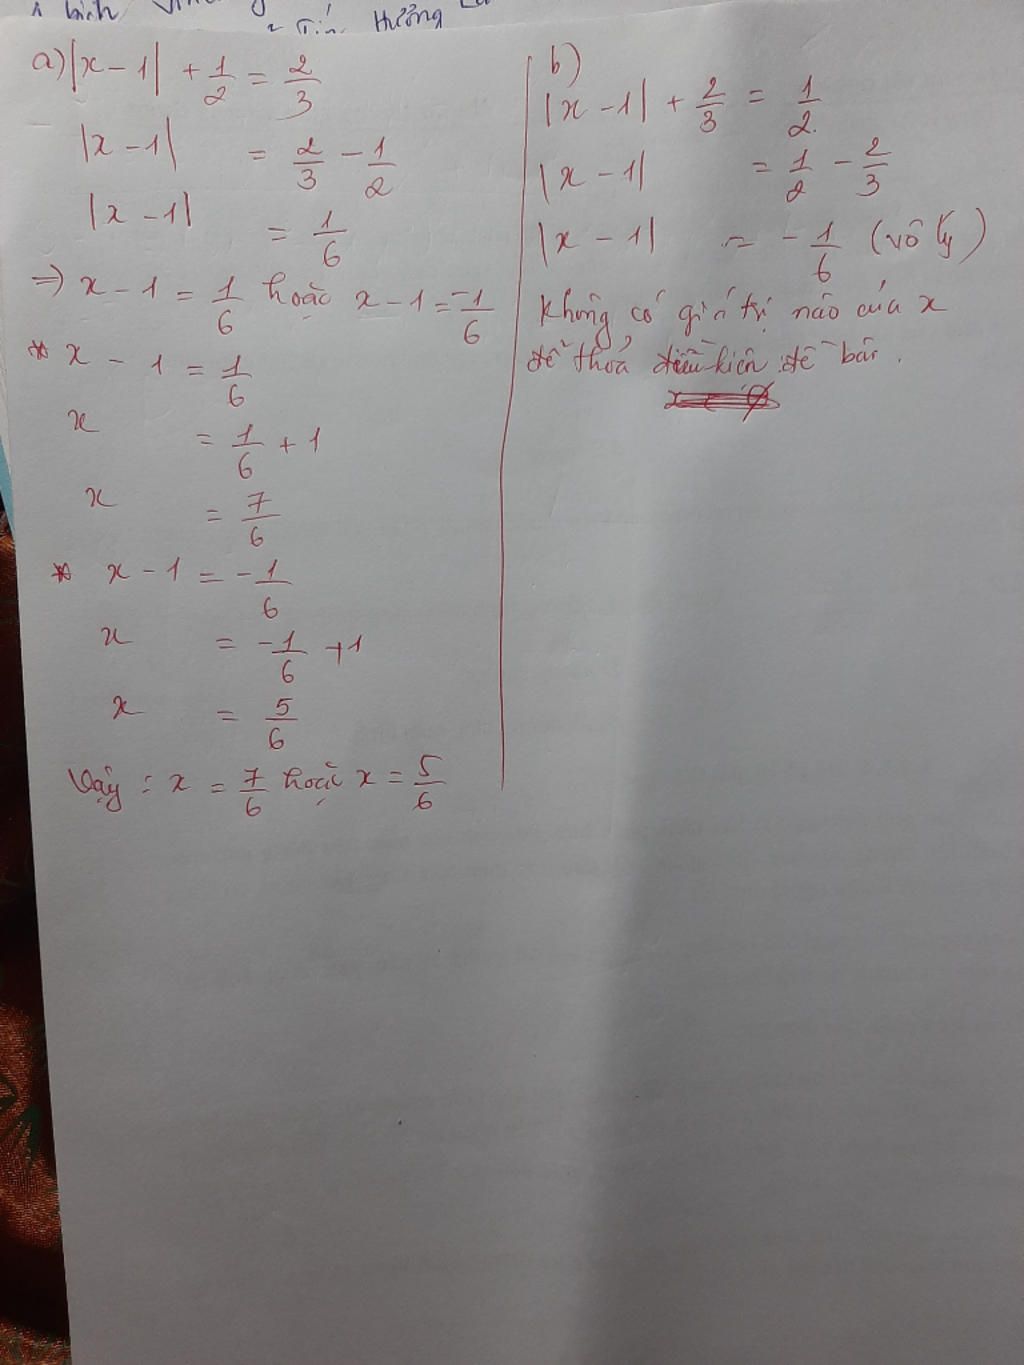 bích
Hưởng
a) |x - 1| + 1/2 = 2/3
|x - 1| = 2/3 - 1/2
|x - 1| = 1/6
=> x - 1 = 1/6 hoặc x - 1 = -1/6
* x - 1 = 1/6
x = 1/6 + 1
x = 7/6
* x - 1 = -1/6
x = -1/6 + 1
x = 5/6
Vậy : x = 7/6 hoặc x = 5/6
b)
|x - 1| + 2/3 = 1/2
|x - 1| = 1/2 - 2/3
|x - 1| = -1/6 (vô lý)
Không có giá trị nào của x
để thoả điều kiện đề bài.